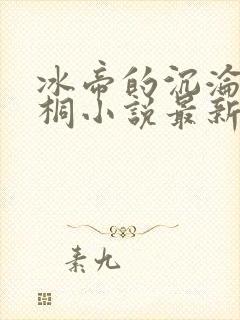 冰帝的沉淪
桐小說最新
素九